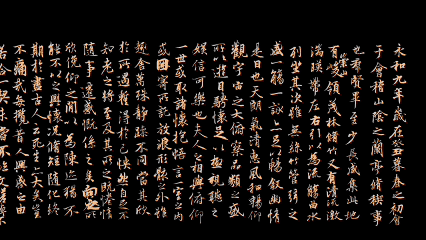 永和九年歲在癸丑暮春之初會
于會稽山陰之蘭亭脩稧事
也羣賢畢至少長咸集此地
有崇山峻領茂林脩竹又有清流激
湍暎帶左右引以為流觴曲水
列坐其次雖無絲竹管弦之
盛一觴一詠亦足以暢敘幽情
是日也天朗氣清惠風和暢仰
觀宇宙之大俯察品類之盛
所以遊目騁懷足以極視聽之
娛信可樂也夫人之相與俯仰
一世或取諸懷抱悟言一室之內
或因寄所託放浪形骸之外雖
趣舍萬殊靜躁不同當其欣
於所遇蹔得於己怏然自足不
知老之將至及其所之既惓情
隨事遷感慨係之矣向之所
欣俛仰之間以為陳迹猶不
能不以之興懷況脩短隨化終
期於盡古人云死生亦大矣豈
不痛哉每攬昔人興感之由
若合一契未嘗不臨文嗟悼